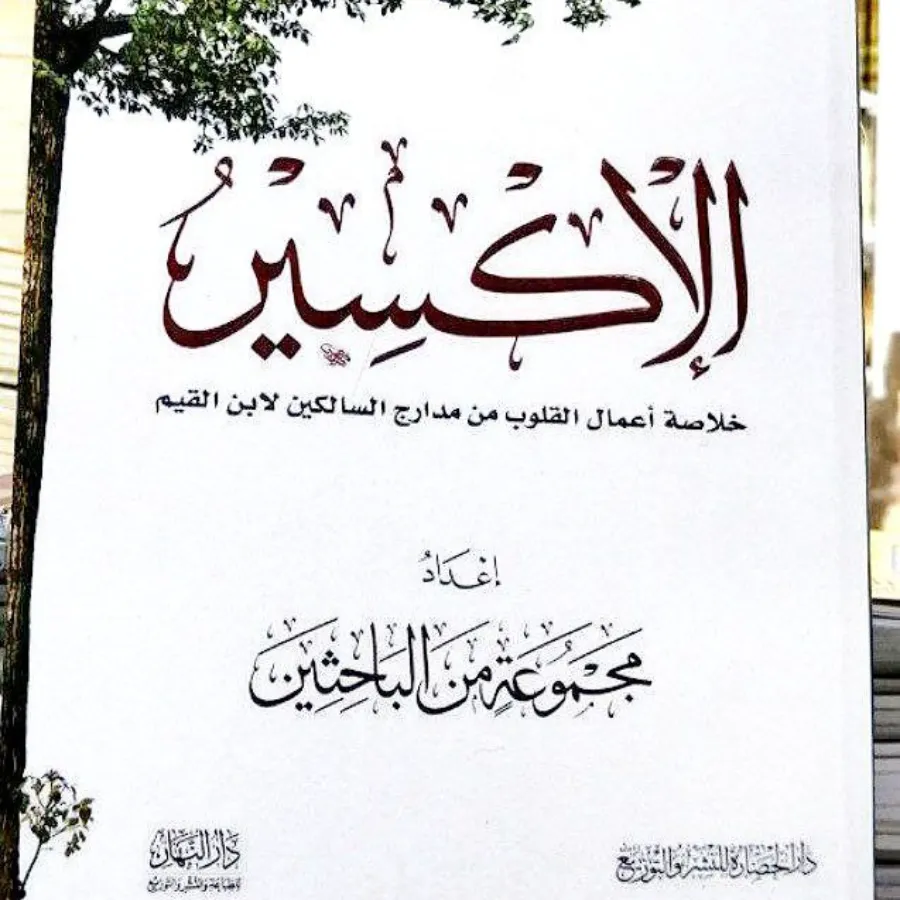 الإكسِيرُ
خلاصة أعمال القلوب من مدارج السالكين لابن القيم
إعْدَادُ
مَجْمُوعَةٍ مِنَ البَاحِثِينَ
دار الحضارة للنشر والتوزيع
دار النهار
للطباعة والنشر والتوزيع